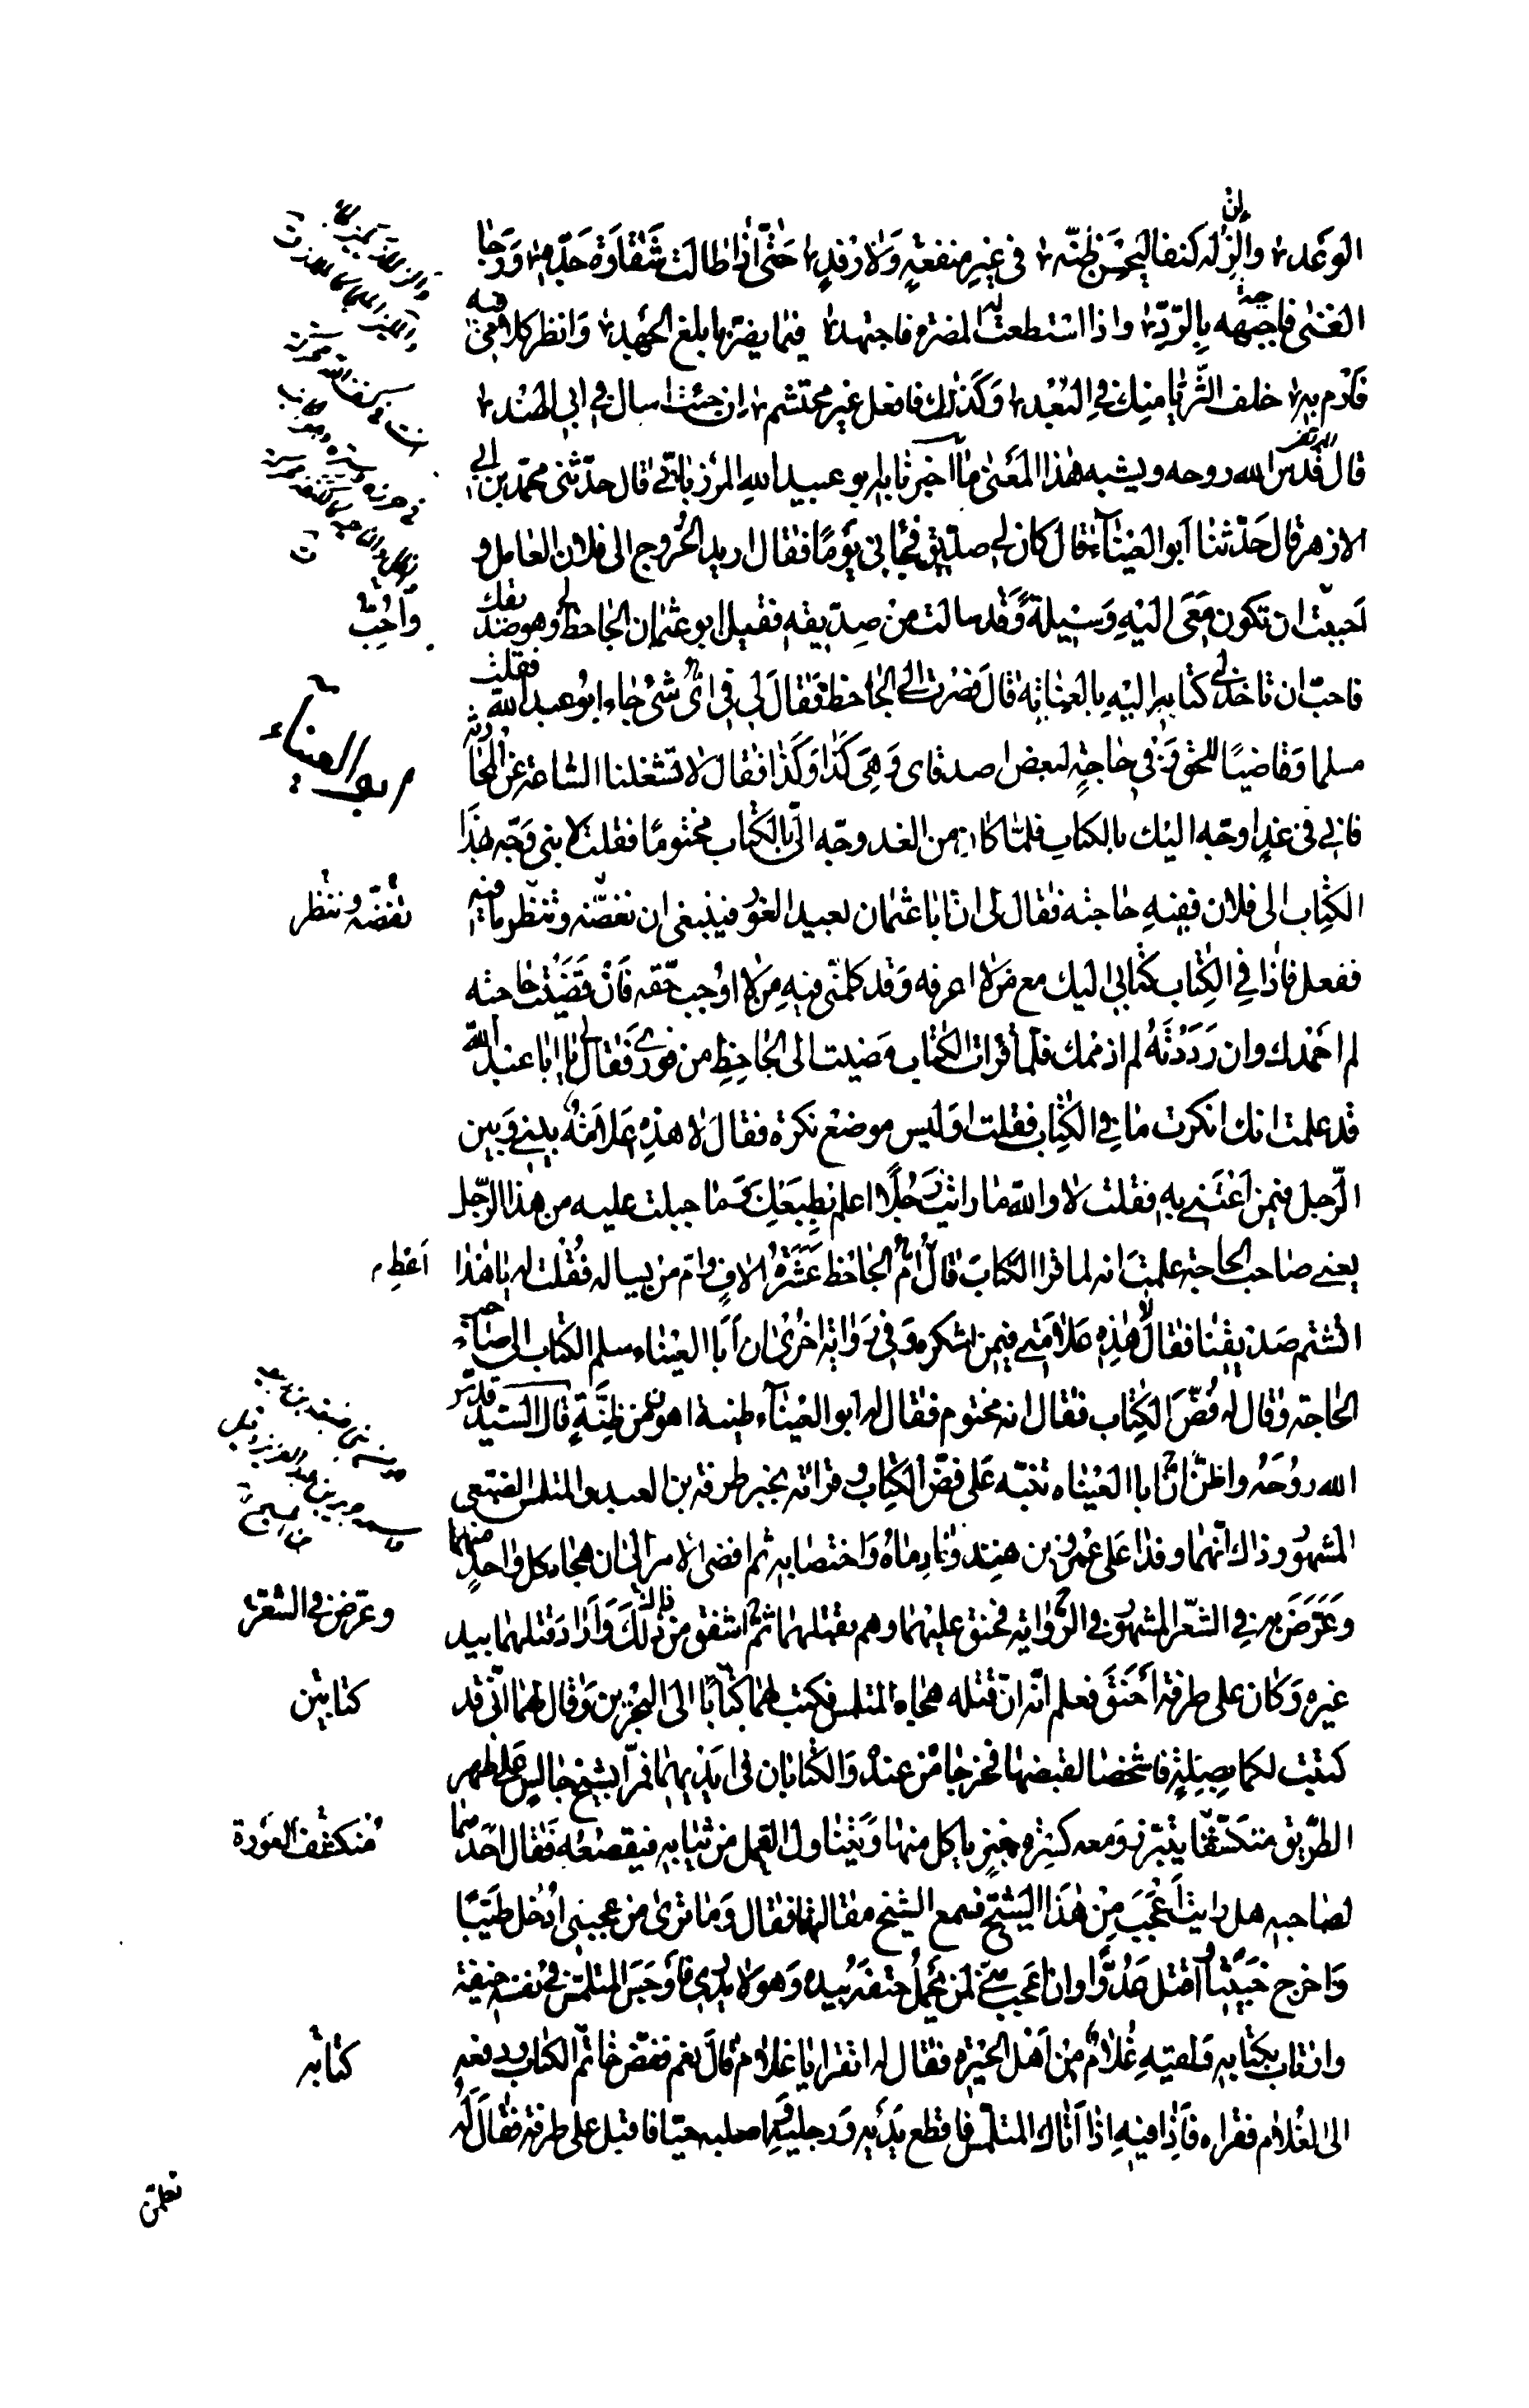 الوعد وانزل له كنفا ليحسن ظنه في غير منفعة ولا رفد حتى اذا طالت شقاوة جده ورجا
الغنى فاجبهه بالرد واذا استطعت له المضرة فاجتهد فيما يضر بابلغ الجهد وانظر كلامي فيه
فارم به خلف الثريا منك في البعد وكذلك فافعل غير محتشم ان جئت اسال في ابي الهند
قال المرتضى قدس الله روحه ويشبه هذا المعنى ما اخبرنا به ابو عبيد الله المرزباني قال حدثني محمد بن ابي
الازهر قال حدثنا ابو العيناء قال كان لي صديق فجاءني يوما فقال اريد الخروج الى فلان العامل و
احببت ان تكون معي اليه وسيلة وقد سالت من صديقه فقيل ابو عثمان الجاحظ وهو صديقك
فاحب ان تاخذ لي كتابه اليه بالعناية قال فصرت الى الجاحظ فقال لي في اي شيء جاء ابو عبد الله فقلت
مسلما وقاضيا للحق وفي حاجة لبعض اصدقاي وهي كذا وكذا فقال لا تشغلنا الساعة عن المحادثة
فاني في غد اوجه اليك بالكتاب فلما كان من الغد وجه الي بالكتاب مختوما فقلت لابني وجه هذا
الكتاب الى فلان ففيه حاجته فقال لي ان ابا عثمان بعيد الغور فينبغي ان نفضه وننظر ما فيه
ففعل فاذا في الكتاب كتابي اليك مع من لا اعرفه وقد كلمني فيه من لا اوجب حقه فان قضيت حاجته
لم احمدك وان رددته لم اذممك فلما قرات الكتاب مضيت الى الجاحظ من فوري فقال لي يا ابا عبد الله
قد علمت انك انكرت ما في الكتاب فقلت اوليس موضع نكرة فقال لا هذه علامة بيني وبين
الرجل فيمن اعتني به فقلت لا والله ما رايت رجلا اعلم بطبعك وما جبلت عليه من هذا الرجل
يعني صاحب الحاجة علمت انه لما قرا الكتاب قال ام الجاحظ عشرة الاف وام من يساله فقلت له يا هذا
اتشتم صديقنا فقال لا هذه علامتي فيمن اشكره وفي رواية اخرى ان ابا العيناء سلم الكتاب الى صاحب
الحاجة وقال له فض الكتاب فقال انه مختوم فقال له ابو العيناء طينة اهون من ظنة قال السيد قدس
الله روحه واظن ان ابا العيناء تنبه على فض الكتاب وقراته بخبر طرفة بن العبد والمتلمس الضبعي
المشهور وذاك انهما وفدا على عمرو بن هند ونادماه واختصا به ثم افضى الامر الى ان هجاه كل واحد منهما
وعرض به في الشعر المشهور في الرواية فحنق عليهما وهم بقتلهما ثم اشفق من ذلك واراد قتلهما بيد
غيره وكان على طرفة احنق فعلم انه ان قتله هجاه المتلمس فكتب لهما كتابا الى البحرين وقال لهما اني قد
كتبت لكما بصلة فاشخصا لقبضها فخرجا من عنده والكتابان في ايديهما فمرا بشيخ جالس على ظهر
الطريق متكشفا يتبرز ومعه كسرة خبز ياكل منها ويتناول القمل من ثيابه فيقصعه فقال احدهما
لصاحبه هل رايت اعجب من هذا الشيخ فسمع الشيخ مقالتهما فقال وما ترى من عجبي ادخل طيبا
واخرج خبيثا واقتل عدوا وان اعجب مني لمن يحمل حتفه بيده وهو لا يدري فاوجس المتلمس في نفسه خيفة
وارتاب بكتابه فلقيه غلام من اهل الحيرة فقال له اتقرا يا غلام قال نعم ففض خاتم الكتاب ودفعه
الى الغلام فقراه فاذا فيه اذا اتاك المتلمس فاقطع يديه ورجليه واصلبه حيا فاقبل على طرفة فقال له
واحب
ابو العيناء
نفضه وننظر
اعط
وعرض في الشعر
كتابين
منكشف العورة
كتابه
تعلمن